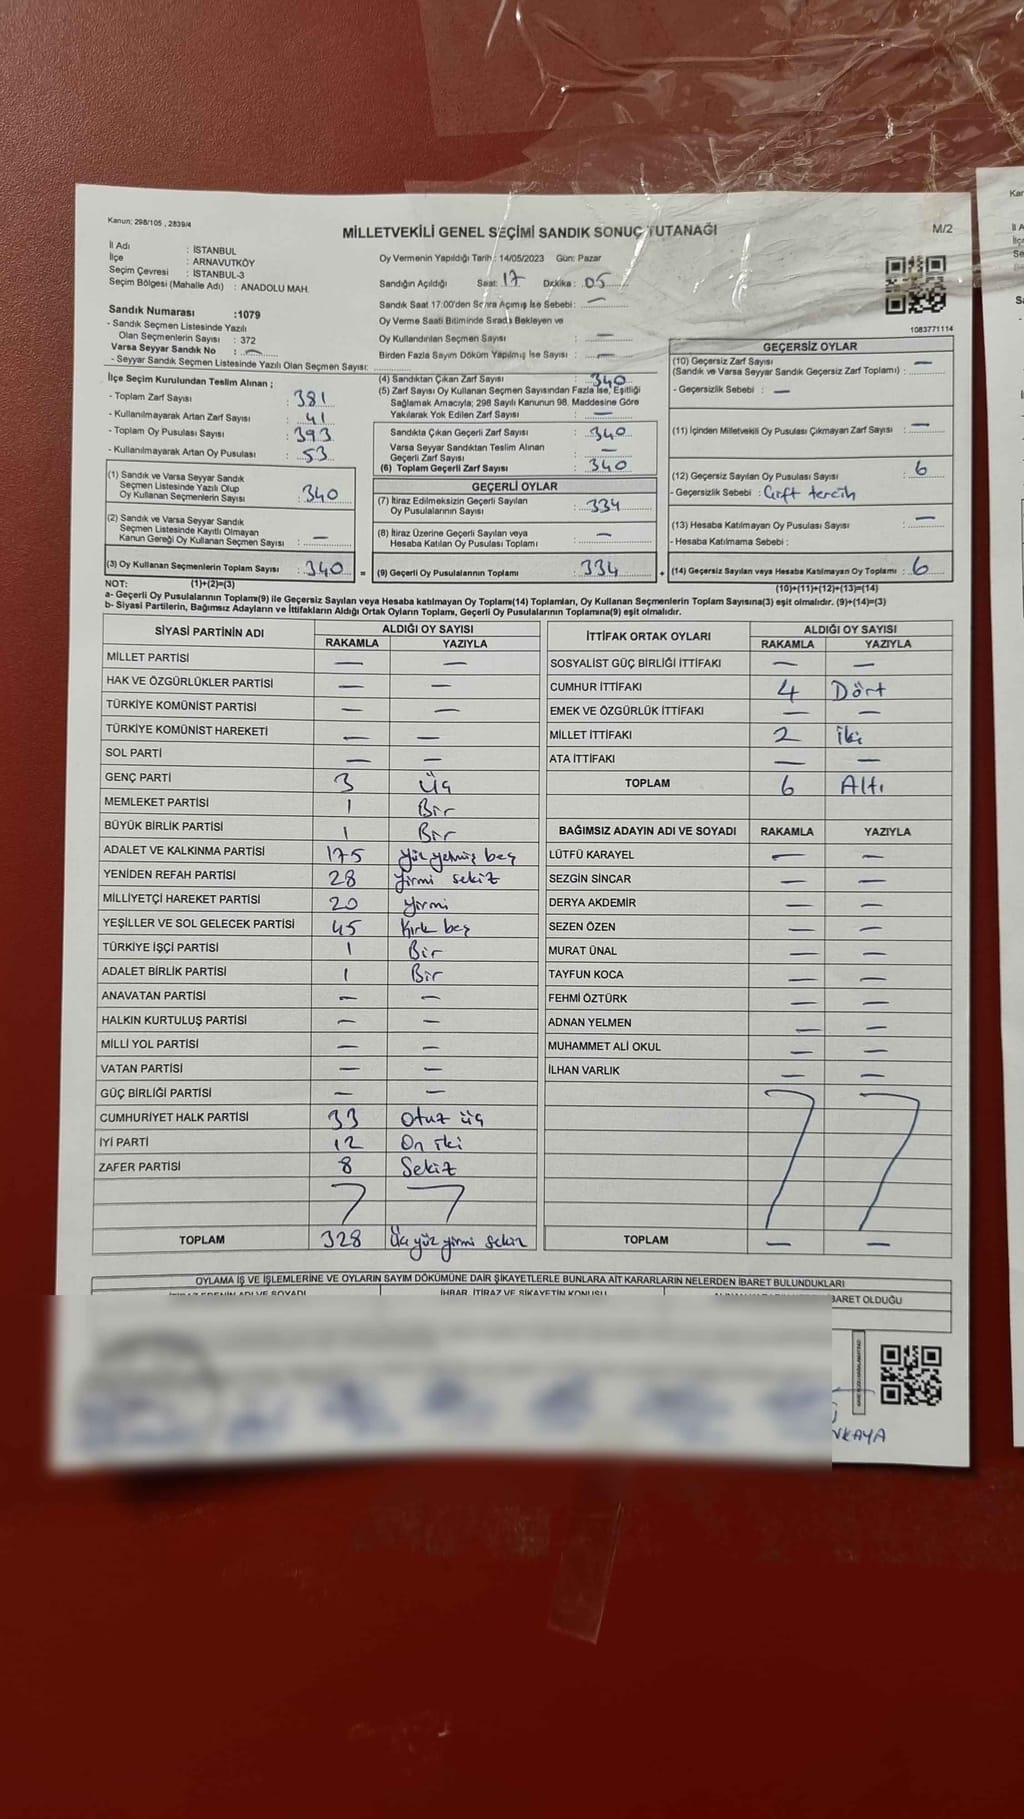 Kanun; 298/105 , 2839/4
MİLLETVEKİLİ GENEL SEÇİMİ SANDIK SONUÇ TUTANAĞI
M/2
İl Adı : İSTANBUL
İlçe : ARNAVUTKÖY
Seçim Çevresi : İSTANBUL-3
Seçim Bölgesi (Mahalle Adı) : ANADOLU MAH.
Sandık Numarası :1079
- Sandık Seçmen Listesinde Yazılı
Olan Seçmenlerin Sayısı : 372
Varsa Seyyar Sandık No : —
- Seyyar Sandık Seçmen Listesinde Yazılı Olan Seçmen Sayısı:
Oy Vermenin Yapıldığı Tarih : 14/05/2023 Gün: Pazar
Sandığın Açıldığı Saat: 17 Dakika : 05
Sandık Saat 17:00'den Sonra Açımış İse Sebebi: —
Oy Verme Saati Bitiminde Sırada Bekleyen ve
Oy Kullandırılan Seçmen Sayısı : —
Birden Fazla Sayım Döküm Yapılmış İse Sayısı : —
1083771114
İlçe Seçim Kurulundan Teslim Alınan ;
- Toplam Zarf Sayısı : 381
- Kullanılmayarak Artan Zarf Sayısı : 41
- Toplam Oy Pusulası Sayısı : 393
- Kullanılmayarak Artan Oy Pusulası : 53
(1) Sandık ve Varsa Seyyar Sandık
Seçmen Listesinde Yazılı Olup
Oy Kullanan Seçmenlerin Sayısı : 340
(2) Sandık ve Varsa Seyyar Sandık
Seçmen Listesinde Kayıtlı Olmayan
Kanun Gereği Oy Kullanan Seçmen Sayısı : —
(3) Oy Kullanan Seçmenlerin Toplam Sayısı : 340 =
(4) Sandıktan Çıkan Zarf Sayısı : 340
(5) Zarf Sayısı Oy Kullanan Seçmen Sayısından Fazla İse, Eşitliği
Sağlamak Amacıyla; 298 Sayılı Kanunun 98. Maddesine Göre
Yakılarak Yok Edilen Zarf Sayısı : —
Sandıkta Çıkan Geçerli Zarf Sayısı : 340
Varsa Seyyar Sandıktan Teslim Alınan
Geçerli Zarf Sayısı : —
(6) Toplam Geçerli Zarf Sayısı : 340
GEÇERLİ OYLAR
(7) İtiraz Edilmeksizin Geçerli Sayılan
Oy Pusulalarının Sayısı : 334
(8) İtiraz Üzerine Geçerli Sayılan veya
Hesaba Katılan Oy Pusulası Toplamı : —
(9) Geçerli Oy Pusulalarının Toplamı : 334 +
GEÇERSİZ OYLAR
(10) Geçersiz Zarf Sayısı
(Sandık ve Varsa Seyyar Sandık Geçersiz Zarf Toplamı) : —
- Geçersizlik Sebebi : —
(11) İçinden Milletvekili Oy Pusulası Çıkmayan Zarf Sayısı : —
(12) Geçersiz Sayılan Oy Pusulası Sayısı : 6
- Geçersizlik Sebebi : Çift tercih
(13) Hesaba Katılmayan Oy Pusulası Sayısı : —
- Hesaba Katılmama Sebebi :
(14) Geçersiz Sayılan veya Hesaba Katılmayan Oy Toplamı : 6
NOT: (1)+(2)=(3)
(10)+(11)+(12)+(13)=(14)
a- Geçerli Oy Pusulalarının Toplamı(9) ile Geçersiz Sayılan veya Hesaba katılmayan Oy Toplam(14) Toplamları, Oy Kullanan Seçmenlerin Toplam Sayısına(3) eşit olmalıdır. (9)+(14)=(3)
b- Siyasi Partilerin, Bağımsız Adayların ve İttifakların Aldığı Ortak Oyların Toplamı, Geçerli Oy Pusulalarının Toplamına(9) eşit olmalıdır.
SİYASİ PARTİNİN ADI ALDIĞI OY SAYISI
RAKAMLA YAZIYLA
MİLLET PARTİSİ — —
HAK VE ÖZGÜRLÜKLER PARTİSİ — —
TÜRKİYE KOMÜNİST PARTİSİ — —
TÜRKİYE KOMÜNİST HAREKETİ — —
SOL PARTİ — —
GENÇ PARTİ 3 Üç
MEMLEKET PARTİSİ 1 Bir
BÜYÜK BİRLİK PARTİSİ 1 Bir
ADALET VE KALKINMA PARTİSİ 175 yüz yetmiş beş
YENİDEN REFAH PARTİSİ 28 yirmi sekiz
MİLLİYETÇİ HAREKET PARTİSİ 20 yirmi
YEŞİLLER VE SOL GELECEK PARTİSİ 45 Kırk beş
TÜRKİYE İŞÇİ PARTİSİ 1 Bir
ADALET BİRLİK PARTİSİ 1 Bir
ANAVATAN PARTİSİ — —
HALKIN KURTULUŞ PARTİSİ — —
MİLLİ YOL PARTİSİ — —
VATAN PARTİSİ — —
GÜÇ BİRLİĞİ PARTİSİ — —
CUMHURİYET HALK PARTİSİ 33 otuz üç
İYİ PARTİ 12 On iki
ZAFER PARTİSİ 8 Sekiz
TOPLAM 328 Üç yüz yirmi sekiz
İTTİFAK ORTAK OYLARI ALDIĞI OY SAYISI
RAKAMLA YAZIYLA
SOSYALİST GÜÇ BİRLİĞİ İTTİFAKI — —
CUMHUR İTTİFAKI 4 Dört
EMEK VE ÖZGÜRLÜK İTTİFAKI — —
MİLLET İTTİFAKI 2 İki
ATA İTTİFAKI — —
TOPLAM 6 Altı
BAĞIMSIZ ADAYIN ADI VE SOYADI RAKAMLA YAZIYLA
LÜTFÜ KARAYEL — —
SEZGİN SİNCAR — —
DERYA AKDEMİR — —
SEZEN ÖZEN — —
MURAT ÜNAL — —
TAYFUN KOCA — —
FEHMİ ÖZTÜRK — —
ADNAN YELMEN — —
MUHAMMET ALİ OKUL — —
İLHAN VARLIK — —
TOPLAM — —
OYLAMA İŞ VE İŞLEMLERİNE VE OYLARIN SAYIM DÖKÜMÜNE DAİR ŞİKAYETLERLE BUNLARA AİT KARARLARIN NELERDEN İBARET BULUNDUKLARI
İHBAR, İTİRAZ VE ŞİKAYETİN KONUSU
BARET OLDUĞU
NKAYA